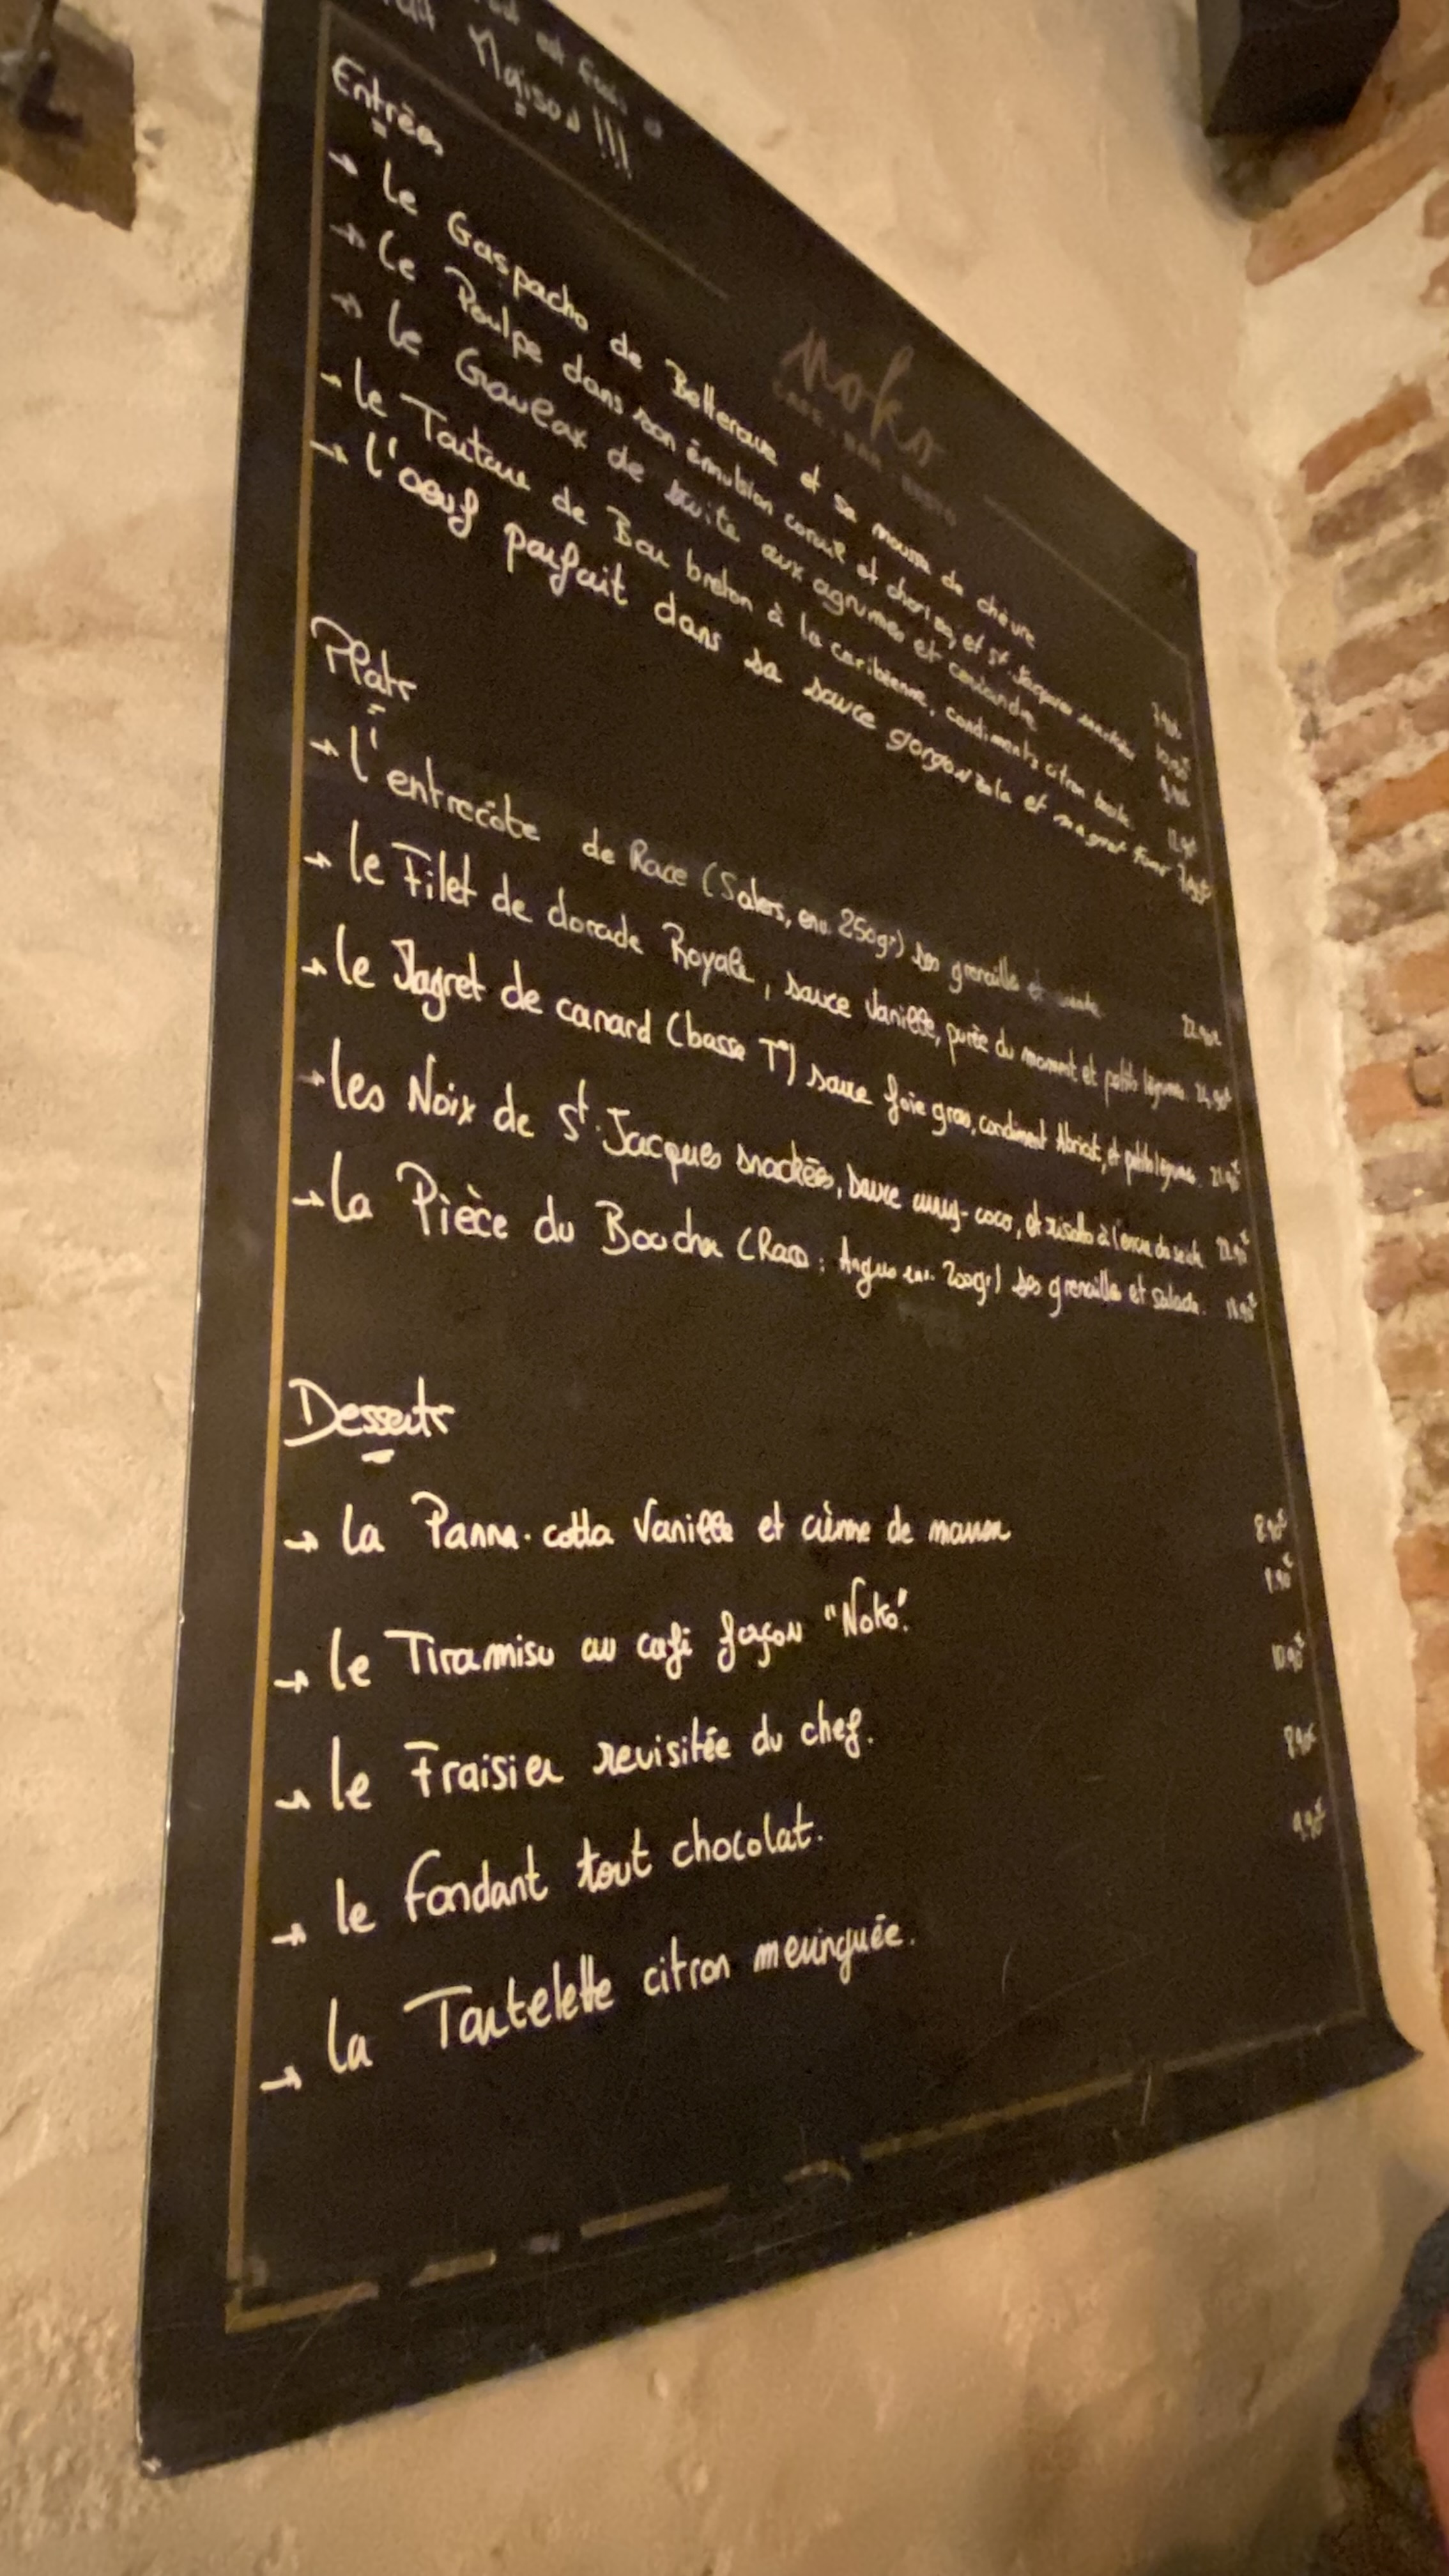 est
Maison !!!
Noko
Entrées
→ Le Gaspacho de Betterave et sa mousse de chèvre
→ Le Poulpe dans son émulsion corail et chorizo, et St. Jacques
→ Le Gravlax de truite aux agrumes et coriandre
→ Le Tartare de Bar breton à la caribéenne, condiments citron
→ L'oeuf parfait dans sa sauce gorgonzola et magret fumé
Plats
→ L'entrecôte de Race (Salers, env. 250gr) ses grenaille et 22.90€
→ Le Filet de dorade Royale, sauce Vanille, purée du moment et petits légumes.
→ Le Magret de canard (basse T°) sauce foie gras, condiment Abricot, et petits légumes.
→ Les Noix de St. Jacques snackées, sauce curry-coco, et risotto à l'encre de seiche
→ La Pièce du Boucher (Race : Angus env. 200gr) ses grenaille et salade.
Desserts
→ La Panna-cotta Vanille et crème de marron 8.90€
→ Le Tiramisu au café façon "Noko". 9.90€
→ Le Fraisier revisitée du chef. 10.90€
→ Le fondant tout chocolat. 8.90€
→ La Tartelette citron meringuée. 9.90€